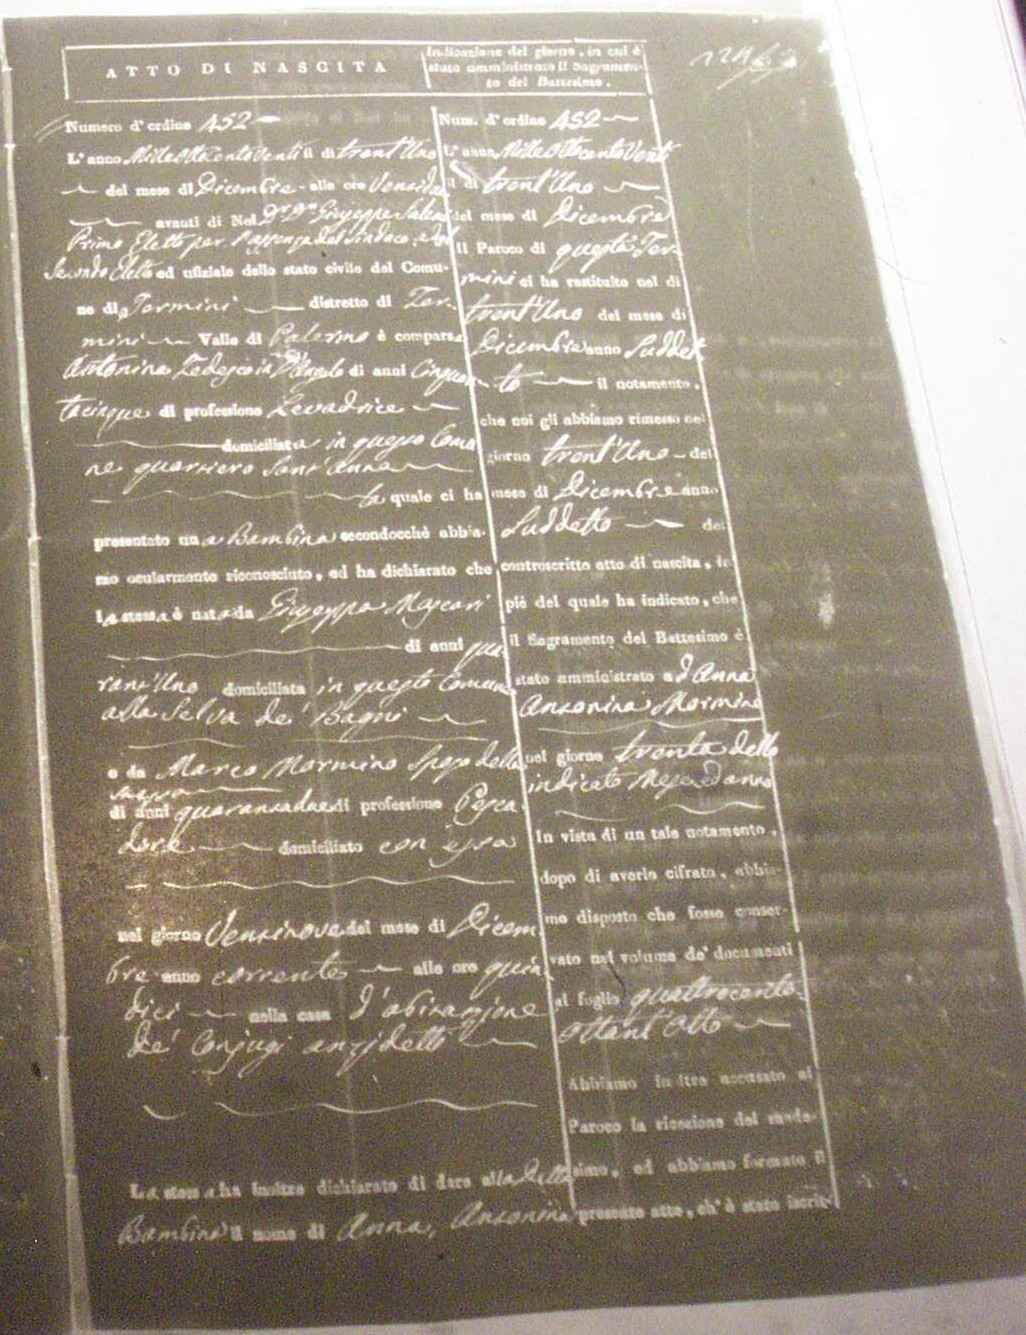 ATTO DI NASCITA
Numero d'ordine 452
L'anno Mille ottocento venti il di trent'Uno
del mese di Dicembre alle ore Venti
avanti di Noi Dr. Dn. Giuseppe
Primo Eletto per l'assenza del Sindaco, e del
Secondo Eletto ed ufiziale dello stato civile del Comu-
ne di Termini distretto di Ter-
mini Valle di Palermo è comparsa
Antonina Tedesco in D'Angelo di anni Cinquan
tacinque di professione Levadrice
domiciliata in questo Comu
ne quartiero Sant'Anna
la quale ci ha
presentato una Bambina secondocchè abbia-
mo ocularmente riconosciuto, ed ha dichiarato che
la stessa è nata da Giuseppa Mascari
di anni qua
rant'Uno domiciliata in questo Comune
alla Selva de' Bagni
e da Marco Mormino Sposo della
di anni quarantadue di professione Pesca
dore domiciliato con essa
nel giorno Ventinove del mese di Dicem
bre anno corrente alle ore quin
dici nella casa d'abitazione
de' Conjugi anzidetti
La stessa ha inoltre dichiarato di dare alla detta
Bambina il nome di Anna, Antonina
Indicazione del giorno, in cui è
stato amministrato il Sagramen-
to del Battesimo.
Num. d'ordine 452
L'anno Mille Ottocento Venti
il di trent'Uno
del mese di Dicembre
Il Paroco di questa Ter-
mini ci ha restituito nel di
trent'Uno del mese di
Dicembre anno Suddet
to il notamento,
che noi gli abbiamo rimesso nel
giorno trent'Uno del
mese di Dicembre anno
Suddetto del
controscritto atto di nascita, in
piè del quale ha indicato, che
il Sagramento del Battesimo è
stato amministrato ad Anna
Antonina Mormino
nel giorno trenta dello
indicato Mese ed anno
In vista di un tale notamento,
dopo di averlo cifrato, abbia-
mo disposto che fosse conser-
vato nel volume de' documenti
al foglio quattrocento
ottant'Otto
Abbiamo inoltre accusato al
Paroco la ricezione del mede-
simo, ed abbiamo formato il
presente atto, ch'è stato iscrit-